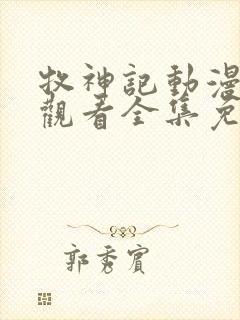 牧神記動漫
觀看全集免
郭秀賓